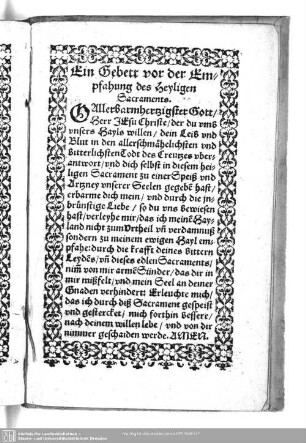 Ein Gebett vor der Em-
pfahung des Heyligen
Sacraments.
O Allerbarmhertzigster Gott/
Herr JEsu Christe/ der du vmb
vnsers Hayls willen/ dein Leib vnd
Blut in den allerschmähelichsten vnd
bitterlichsten Todt des Creutzes vber-
antwort/ vnd dich selbst in diesem hei-
ligen Sacrament zu einer Speiß vnd
Artzney vnserer Seelen gegebē hast/
erbarme dich mein/ vnd durch die in-
brünstige Liebe/ so du vns bewiesen
hast/ verleyhe mir/ das ich meinē Hay-
land nicht zum Vrtheil vñ verdamnuß
sondern zu meinem ewigen Hayl em-
pfahe: durch die krafft deines bittern
Leydēs/ vñ dieses edlen Sacraments/
nim̄ von mir armē Sünder/ das dir in
mir mißfelt/ vnd mein Seel an deiner
Gnaden verhindert: Erleuchte mich/
das ich durch diß Sacrament gespeist
vnd gestercket/ mich forthin bessere/
nach deinem willen lebe/ vnd von dir
nimmer geschaiden werde. AMEN.